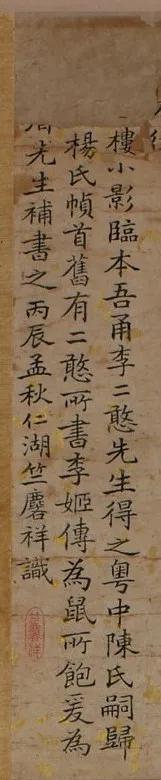 樓小影臨本吾甬李二憨先生得之粤中陳氏嗣歸
楊氏幀首舊有二憨所書李姬傳為鼠所飽爰為
先生補書之丙辰孟秋仁湖竺麐祥識